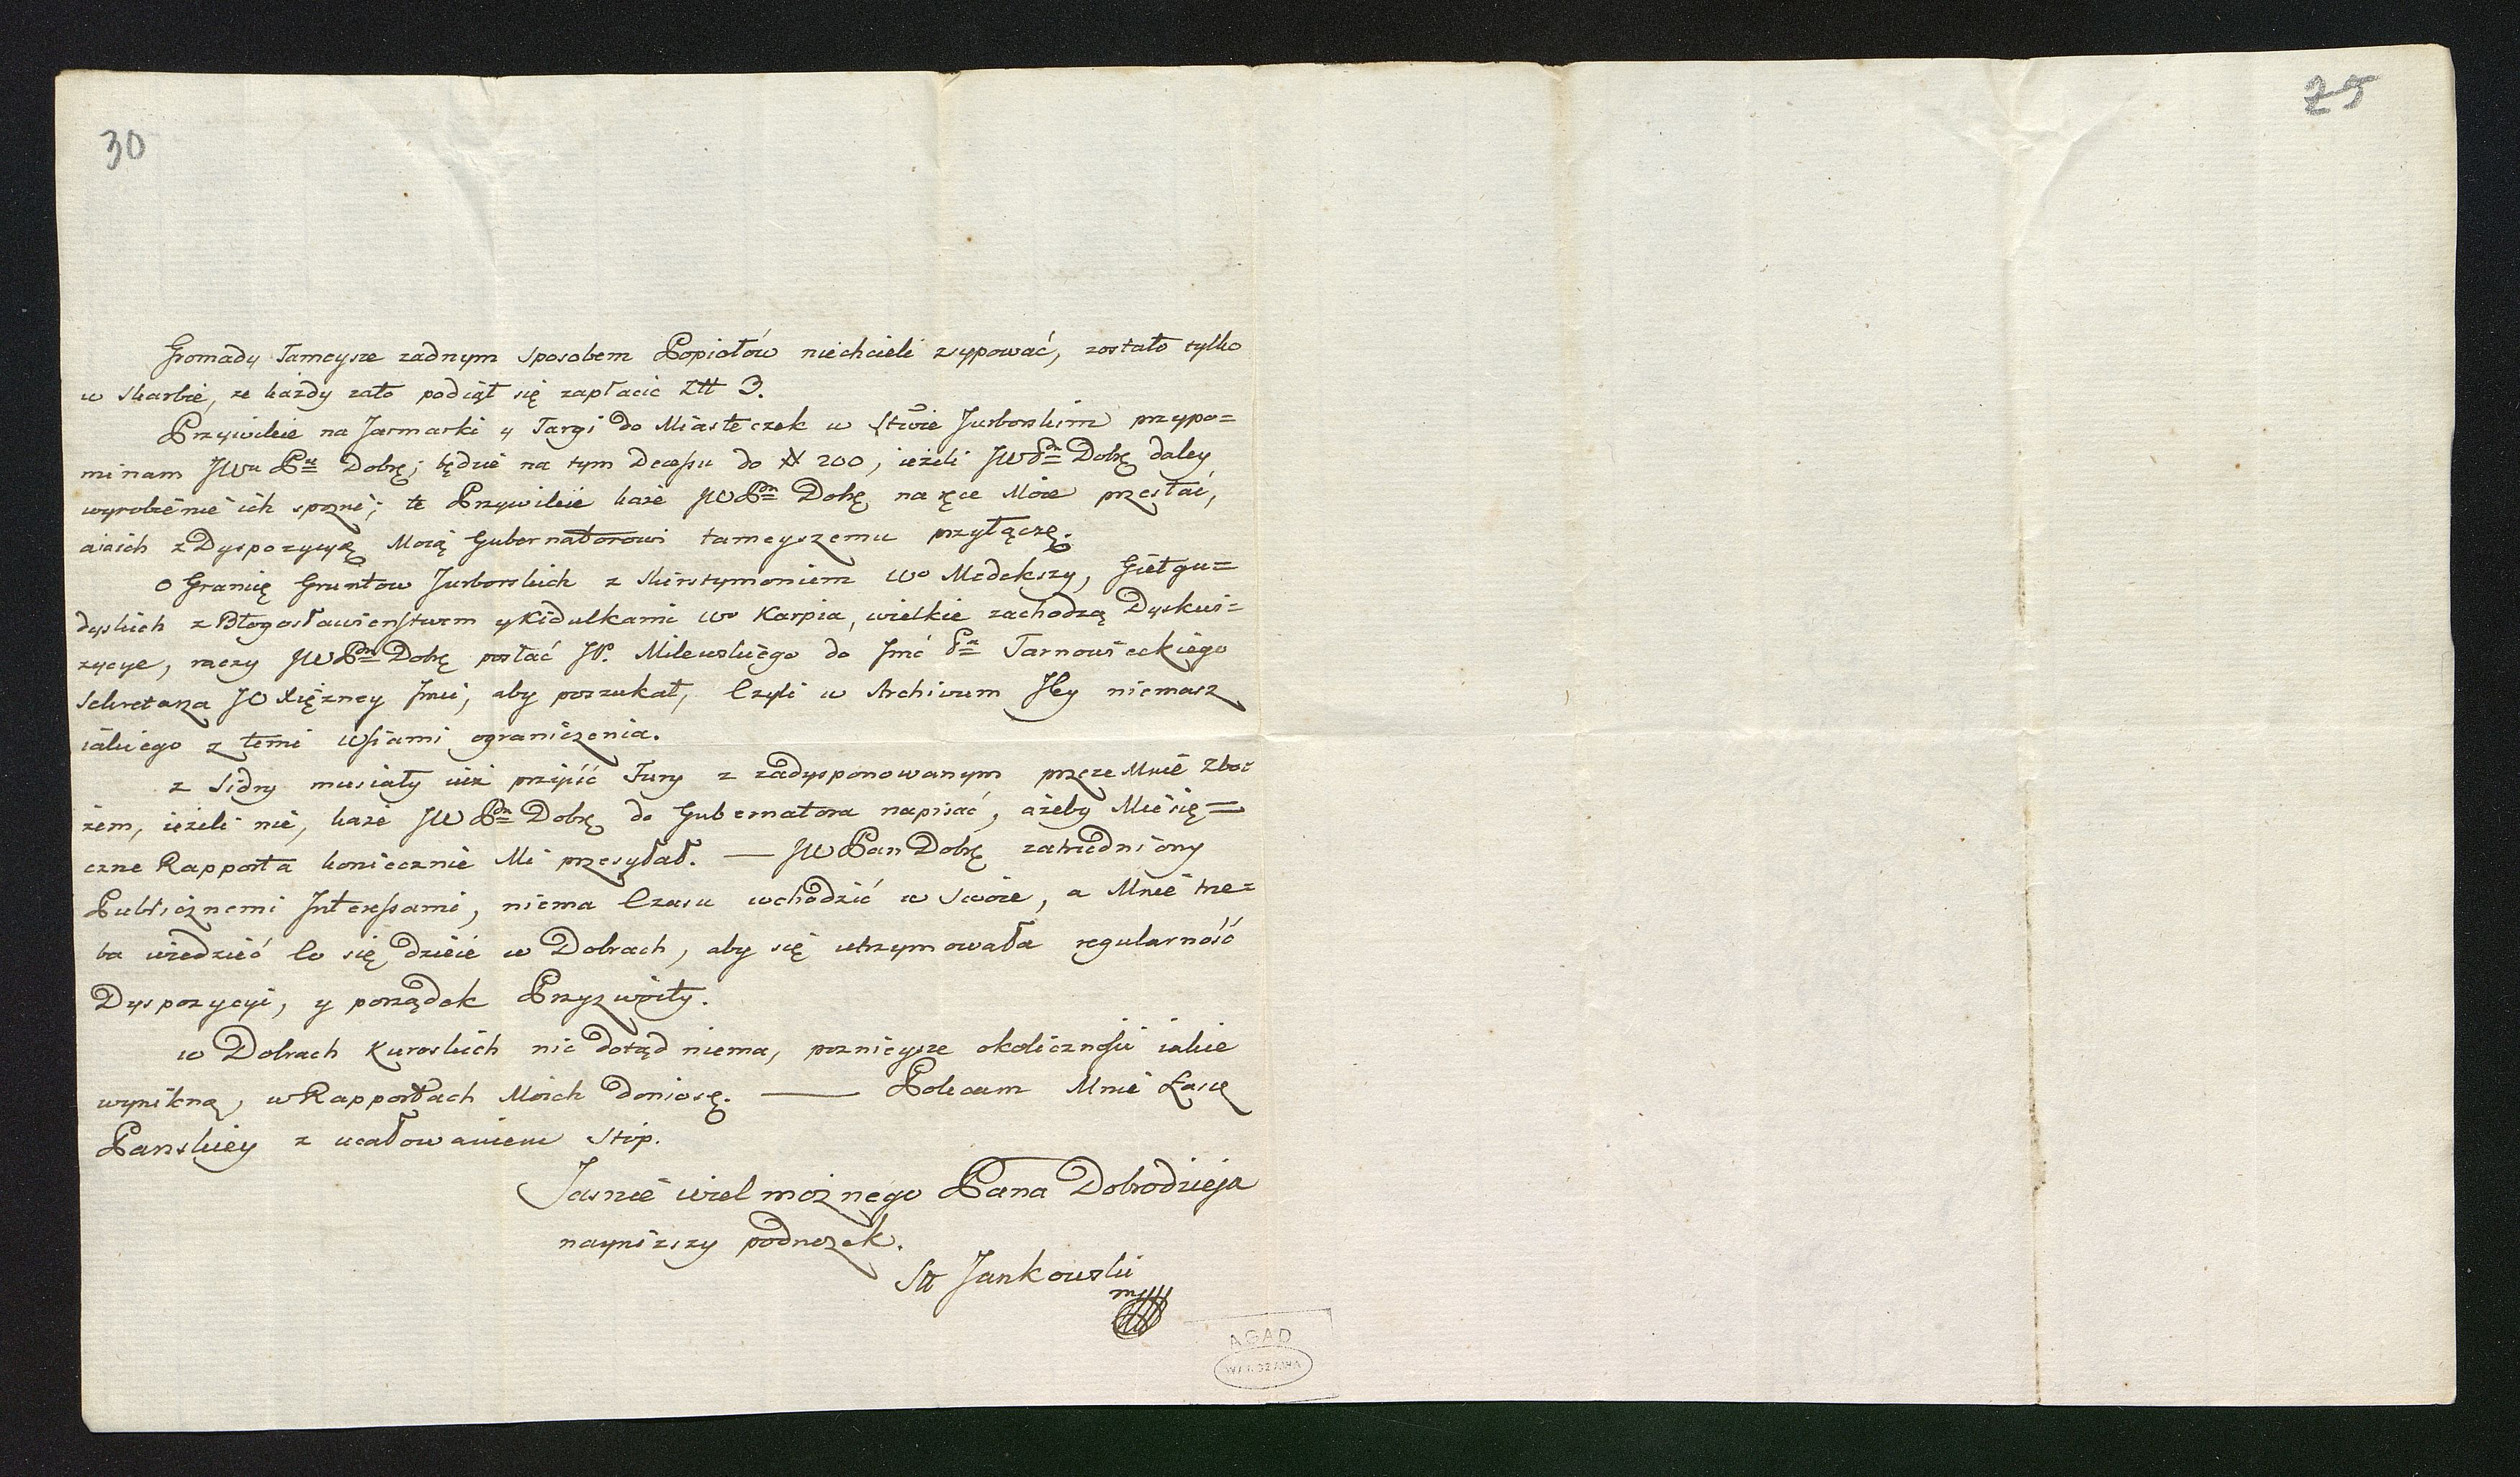 30
25
Gromady Tameysze zadnym sposobem Popiołów niechcieli zsypować, zostało tylko
w Skarbie, ze każdy zato podiął się zapłacic Ztt 3.
Przywileie na Jarmarki y Targi do Miasteczek w Stwie Jurborskim przypo=
minam JWu Pu Dobrę; będzie na tym Decessu do # 200, ieżeli JWPan Dobrę daley
wyrobienie ich spozni; te Przywileie każe JWPan Dobrę na ręce Moie przesłać,
aia ich z Dyspozycyą Moią Gubernatorowi tameyszemu przyłączę.
O Granicę Gruntow Jurborskich z Skirstymoniem Wo Medekszy, Giełgu=
dyskich z Błogosławienstwem y Kidulkami Wo Karpia, wielkie zachodzą Dyskwi=
zycye, raczy JWPan Dobrę posłać JP. Milewskiego do Jmć Pa Tarnowieckiego
Sekretarza JO Xiężney Jmci, aby poszukał, Czyli w Archivum Jey niemasz
iakiego z temi Wsiami ograniczenia.
z Sidry musiały iuż przyiść Fury z zadysponowanym przeze Mnie Zbo=
żem, ieżeli nie, każe JWPan Dobrę do Gubernatora napisać, ażeby Miesię=
czne Rapporta koniecznie Mi przesyłał. — JW Pan Dobrę zatrudniony
Publicznemi Interessami, niema Czasu wchodzić w Swoie, a Mnie trze=
ba wiedzieć Co się dzieie w Dobrach, aby się utrzymowała regularność
Dyspozycyi, y porządek Przyzwoity.
w Dobrach Kuroskich nic dotąd niema, poznieysze okoliczności iakie
wynikną, w Rapportach Moich doniosę. — Polecam Mnie Łasce
Panskiey z ucałowaniem Stóp.
Jasnie wielmożnego Pana Dobrodzieja
nayniższy podnożek.
Stt Jankowski
mp
AGAD
WARSZAWA